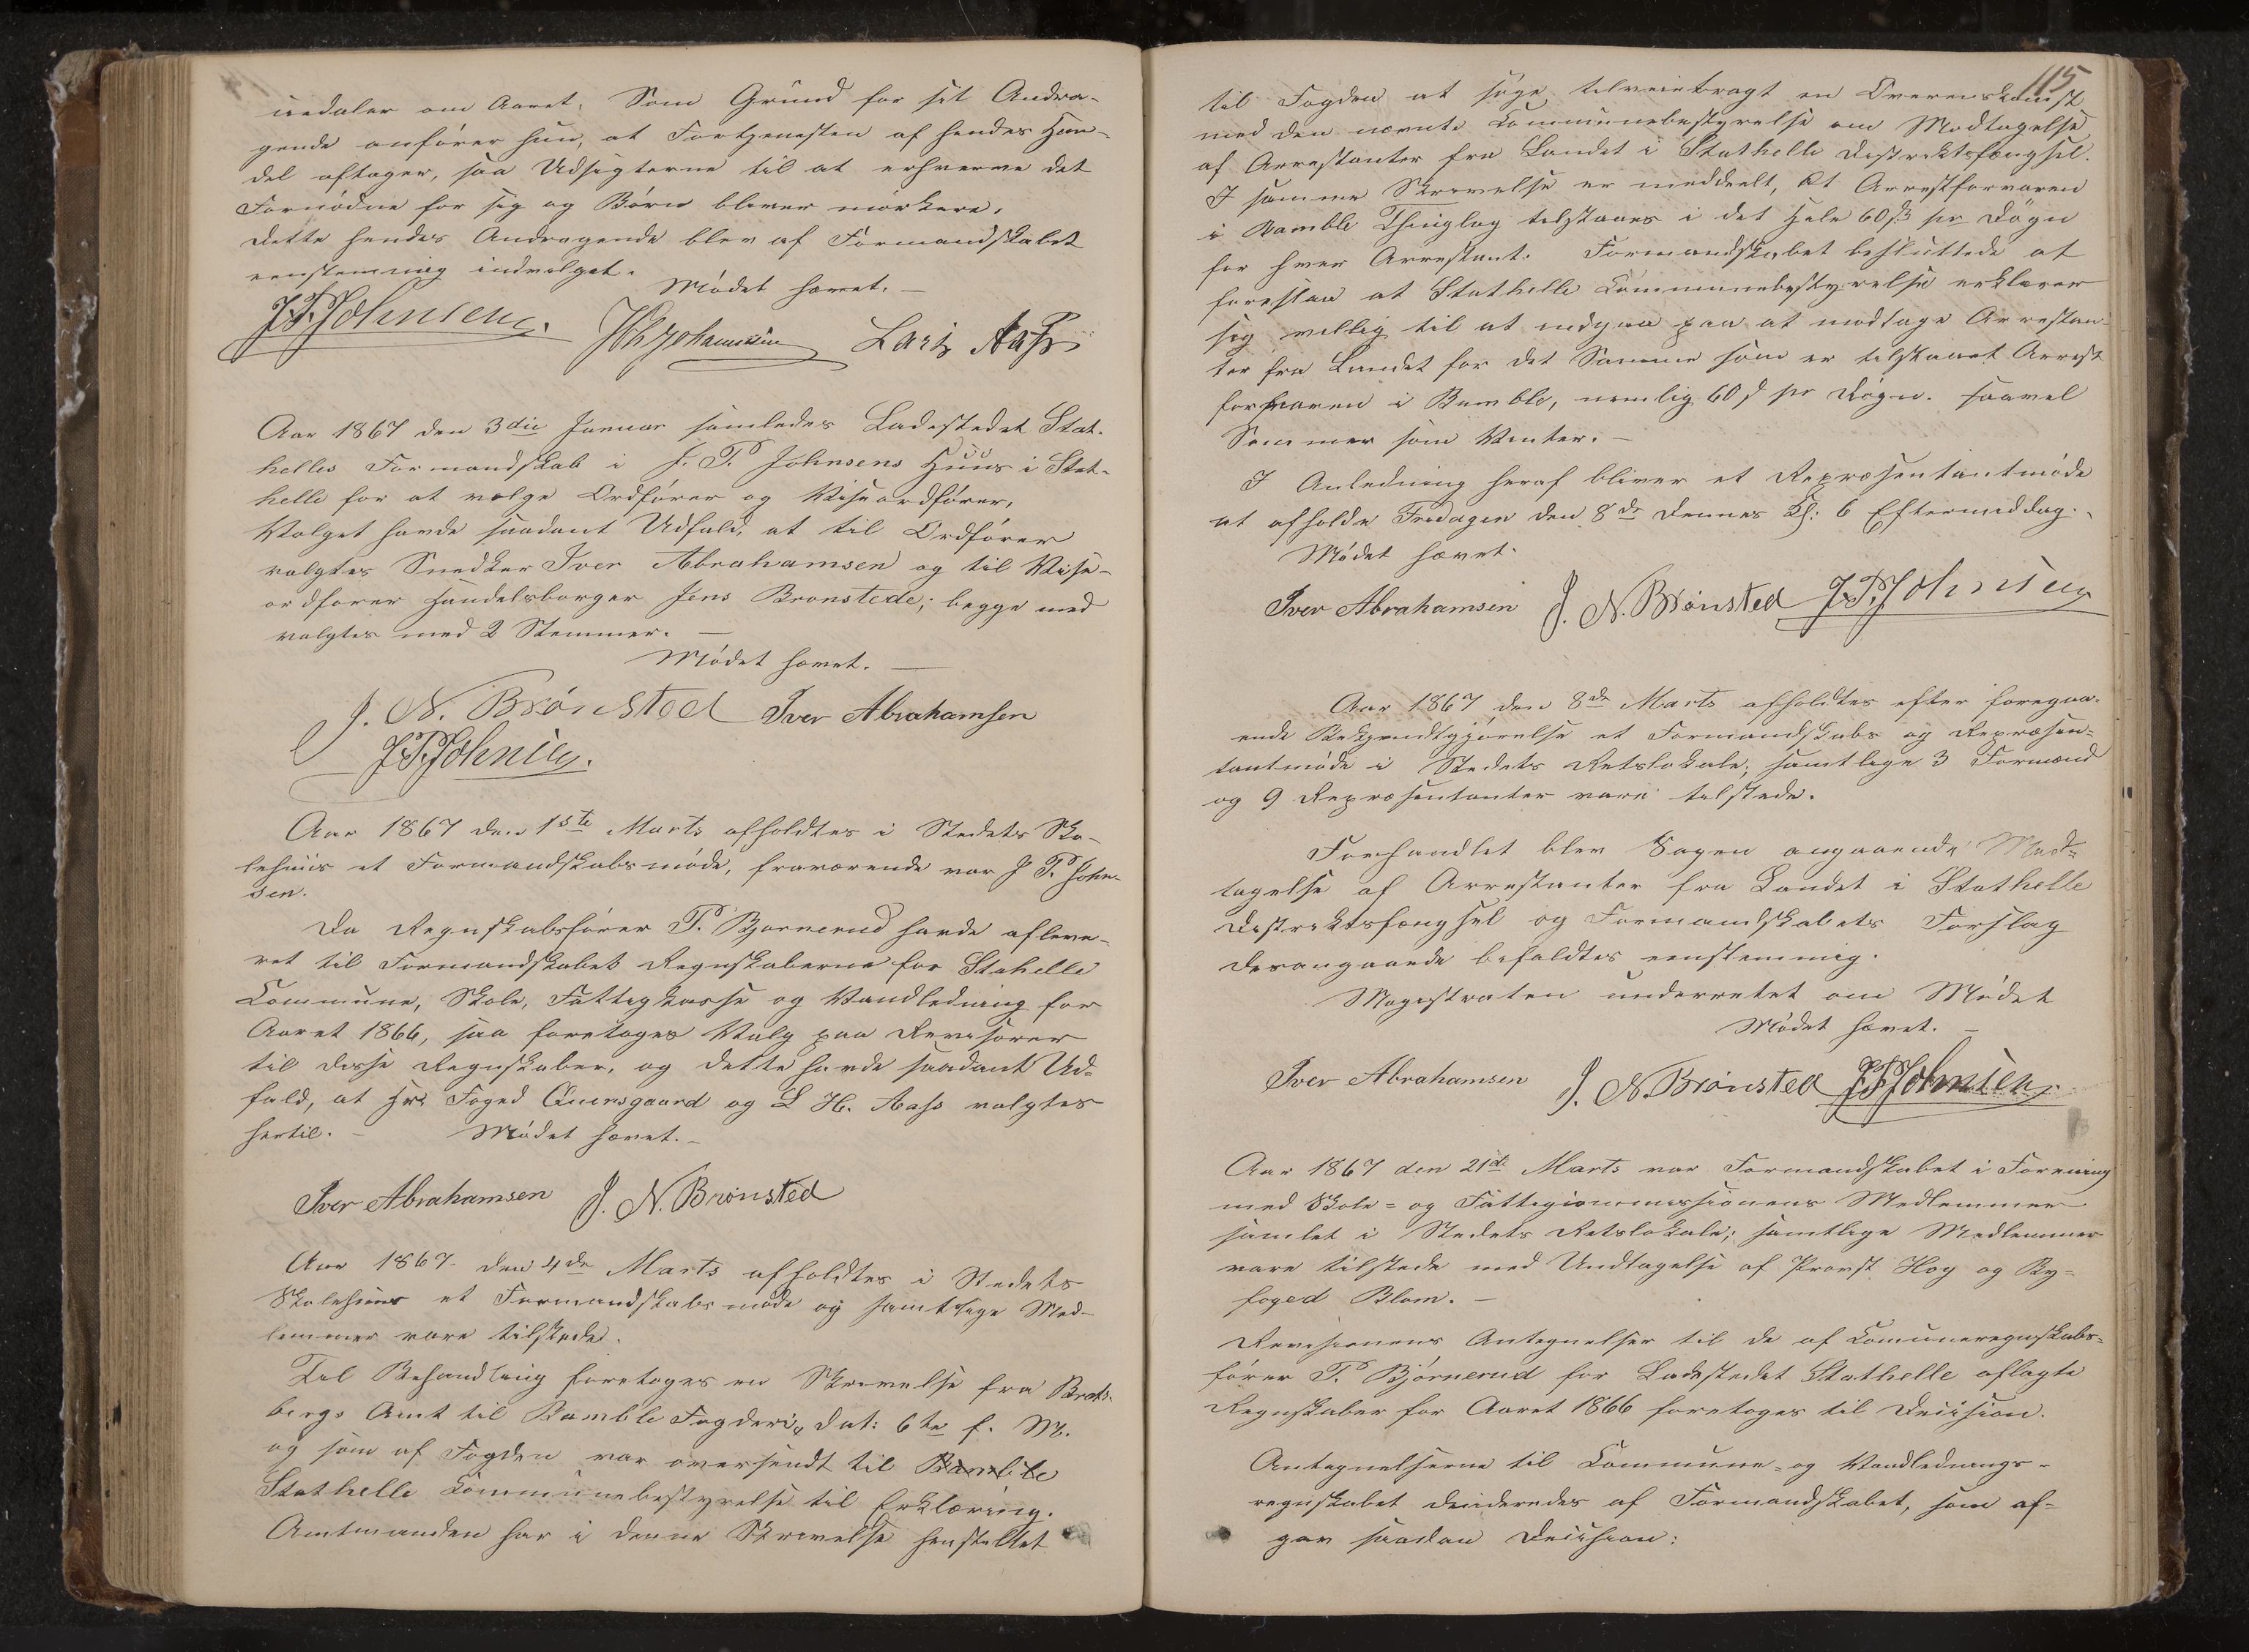 iedaler om Aaret. Som Grund for sit Andra-
gende anfører hun, at Fortjenesten af hendes Han-
del aftager, saa Udsigterne til at erhverve det
Fornødne for sig og Børn bliver mørkere.
Dette hendes Andragende blev af Formandskabet
eenstemmig indvilget.
Mødet hævet. —
J. P. Johnsen. Joh Johannesen Lars Aass
Aar 1867 den 3die Januar samledes Ladestedet Stat-
helles Formandskab i J. P. Johnsens Huus i Stat-
helle for at vælge Ordfører og Viseordfører.
Valget havde saadant Udfald, at til Ordfører
valgtes Snedker Iver Abrahamsen og til Vise-
ordfører Handelsborger Jens Brønstede; begge med
valgtes med 2 Stemmer. —
Mødet hævet. —
J. N. Brønsted Iver Abrahamsen
J. P. Johnsen.
Aar 1867 den 1ste Marts afholdtes i Stedets Sko-
lehuus et Formandskabsmøde, fraværende var J P. John-
sen.
Da Regnskabsfører P. Bjørnerud havde afleve-
ret til Formandskabet Regnskaberne for Stahelle
Commune, Skole, Fattigkasse og Vandledning for
Aaret 1866, saa foretoges Valg paa Revisorer
til disse Regnskaber, og dette havde saadant Ud-
fald, at Hr. Foged Qvensgaard og L H. Aass valgtes
hertil. — Mødet hævet. —
Iver Abrahamsen J. N. Brønsted
Aar 1867 den 4de Marts afholdtes i Stedets
Skolehuus et Formandskabsmøde og samtlige Med-
lemmer vare tilstede.
Til Behandling foretoges en Skrivelse fra Brats-
bergs Amt til Bamble Fogderi, dat: 6te f. M.
og som af Fogden var oversendt til Bamble
Stathelle Communebestyrelse til Erklæring.
Amtmanden har i denne Skrivelse henstillet
115
til Fogden at søge tilveiebragt en Overenskomst
med den nævnte Communebestyrelse om Modtagelse
af Arrestanter fra Landet i Stathelle Distriktsfængsel.
I samme Skrivelse er meddeelt, at Arrestforvaren
i Bamble Thinglag tilstaaes i det Hele 60 ß pr Døgn
for hver Arrestant. Formandskabet besluttede at
foreslaa at Stathelle Communebestyrelse erklærer
sig villig til at indgaa paa at modtage Arrestan-
ter fra Landet for det Samme som er tilstaaet Arrest
forvaren i Bamble, nemlig 60 ß pr Døgn. saavel
Sommer som Vinter. —
I Anledning heraf bliver et Repræsentantmøde
at afholde Fredagen den 8de dennes Kl: 6 Eftermiddag.
Mødet hævet.
Iver Abrahamsen J. N. Brønsted J. P. Johnsen
Aar 1867 den 8de Marts afholdtes efter foregaa-
ende Bekjendtgjørelse et Formandskabs og Repræsen-
tantmøde i Stedets Retslokale; samtlige 3 Formænd
og 9 Repræsentanter vare tilstede.
Forhandlet blev Sagen angaaende Mod-
tagelse af Arrestanter fra Landet i Stathelle
Distriktsfængsel og Formandskabets Forslag
desangaaende befaldtes eenstemmig.
Magistraten underrettet om Mødet
Mødet hævet. —
Iver Abrahamsen J. N. Brønsted J. P. Johnsen
Aar 1867 den 21de Marts var Formandskabet i Forening
med Skole- og Fattigcommissionens Medlemmer
samlet i Stedets Retslokale; samtlige Medlemmer
vare tilstede med Undtagelse af Provst Hog og By-
foged Blom. —
Revisionens Antegnelser til de af Communeregnskabs-
fører P. Bjørnerud for Ladestedet Stathelle aflagte
Regnskaber for Aaret 1866 foretoges til Decision.
Antegnelserne til Commune- og Vandlednings-
regnskabet decideredes af Formandskabet, som af-
gav saadan Decision: